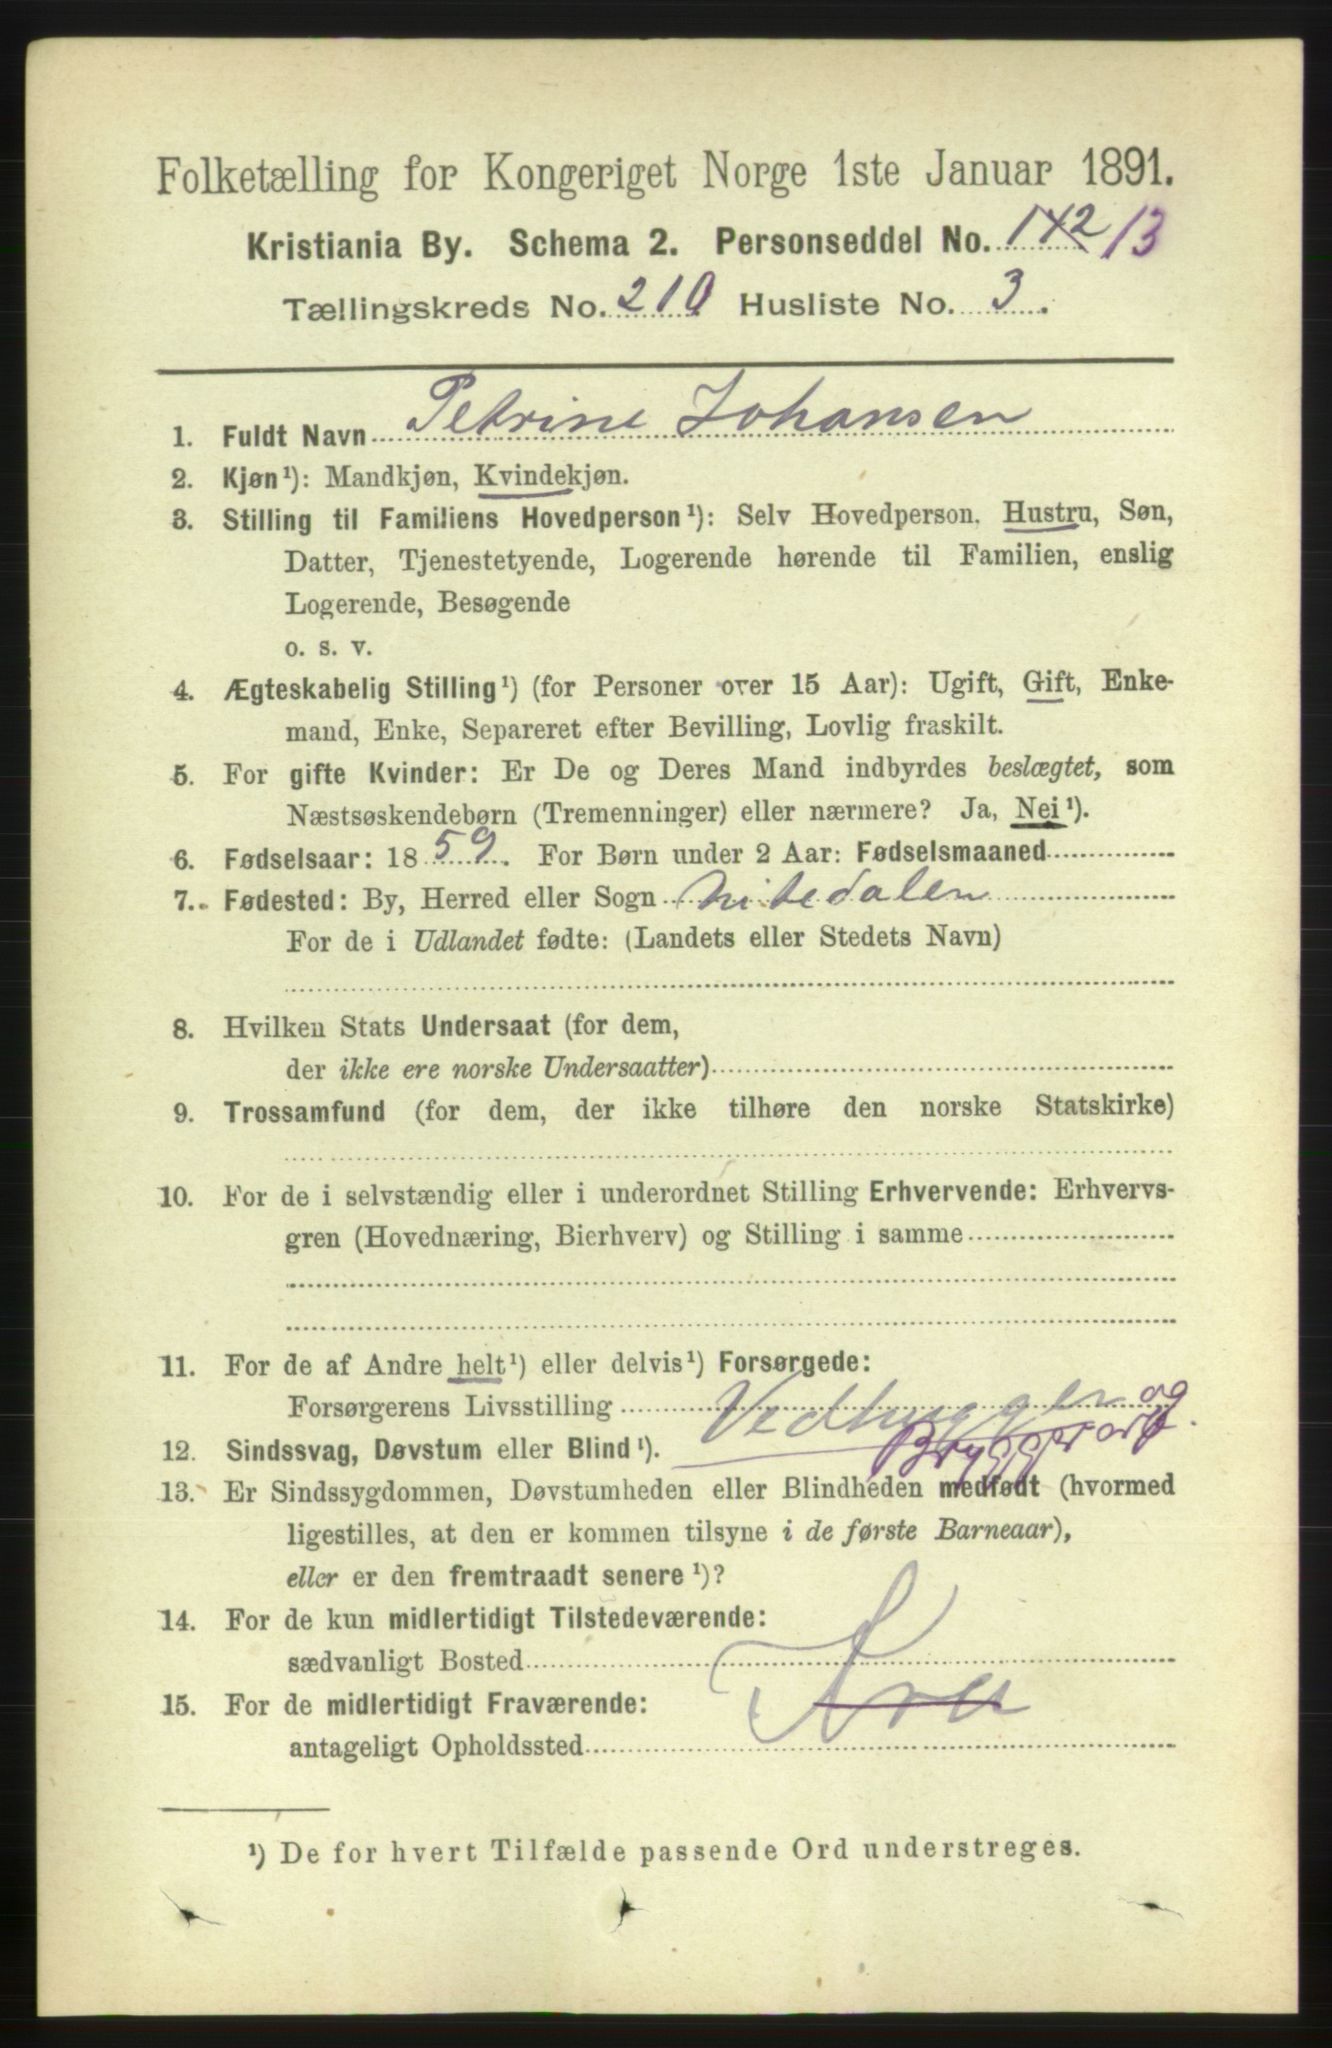 Folketælling for Kongeriget Norge 1ste Januar 1891.
Kristiania By. Schema 2. Personseddel No. 142 13
Tællingskreds No. 210 Husliste No. 3.
1. Fuldt Navn Petrine Johansen
2. Kjøn¹): Mandkjøn, Kvindekjøn.
3. Stilling til Familiens Hovedperson¹): Selv Hovedperson, Hustru, Søn,
Datter, Tjenestetyende, Logerende hørende til Familien, enslig
Logerende, Besøgende
o. s. v.
4. Ægteskabelig Stilling¹) (for Personer over 15 Aar): Ugift, Gift, Enke-
mand, Enke, Separeret efter Bevilling, Lovlig fraskilt.
5. For gifte Kvinder: Er De og Deres Mand indbyrdes beslægtet, som
Næstsøskendebørn (Tremenninger) eller nærmere? Ja, Nei¹).
6. Fødselsaar: 1859. For Børn under 2 Aar: Fødselsmaaned
7. Fødested: By, Herred eller Sogn Nitedalen
For de i Udlandet fødte: (Landets eller Stedets Navn)
8. Hvilken Stats Undersaat (for dem,
der ikke ere norske Undersaatter)
9. Trossamfund (for dem, der ikke tilhøre den norske Statskirke)
10. For de i selvstændig eller i underordnet Stilling Erhvervende: Erhvervs-
gren (Hovednæring, Bierhverv) og Stilling i samme
11. For de af Andre helt¹) eller delvis¹) Forsørgede:
Forsørgerens Livsstilling Vedhugger og
Bryggerarb.
12. Sindssvag, Døvstum eller Blind¹).
13. Er Sindssygdommen, Døvstumheden eller Blindheden medfødt (hvormed
ligestilles, at den er kommen tilsyne i de første Barneaar),
eller er den fremtraadt senere¹)?
14. For de kun midlertidigt Tilstedeværende:
sædvanligt Bosted
15. For de midlertidigt Fraværende:
antageligt Opholdssted
¹) De for hvert Tilfælde passende Ord understreges.